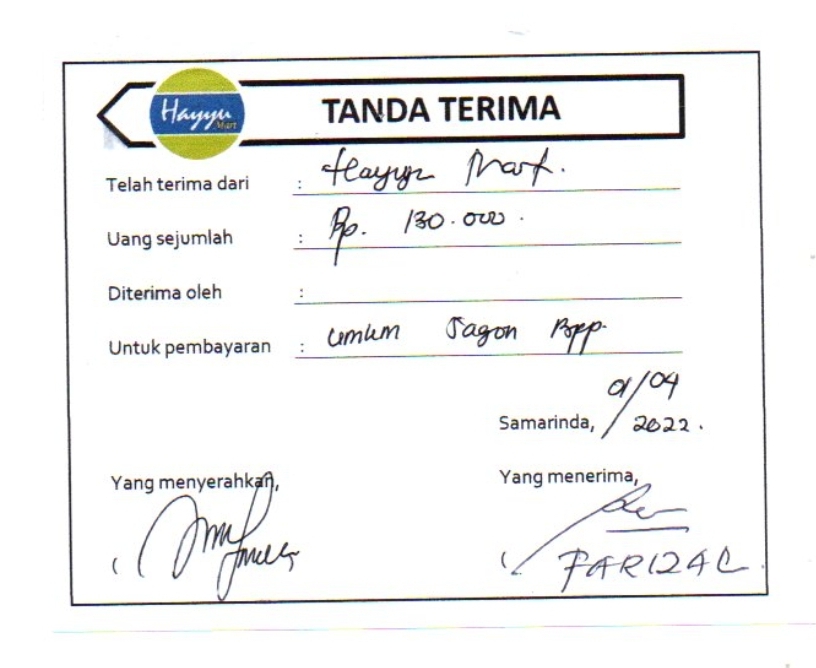 Hayyu
Mart
TANDA TERIMA
Telah terima dari : Hayyu Mart.
Uang sejumlah : Rp. 130.000.
Diterima oleh :
Untuk pembayaran : umkm Sagon Bpp.
Samarinda, 01/04 2022.
Yang menyerahkan,
Yang menerima,
FARIZAL